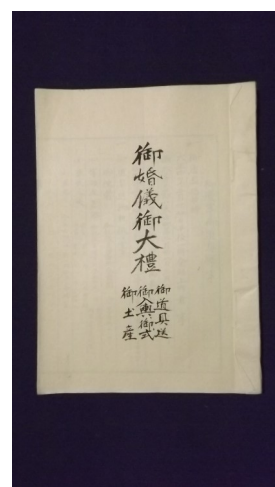 御婚儀御大禮
御道具送
御入輿御式
御土産